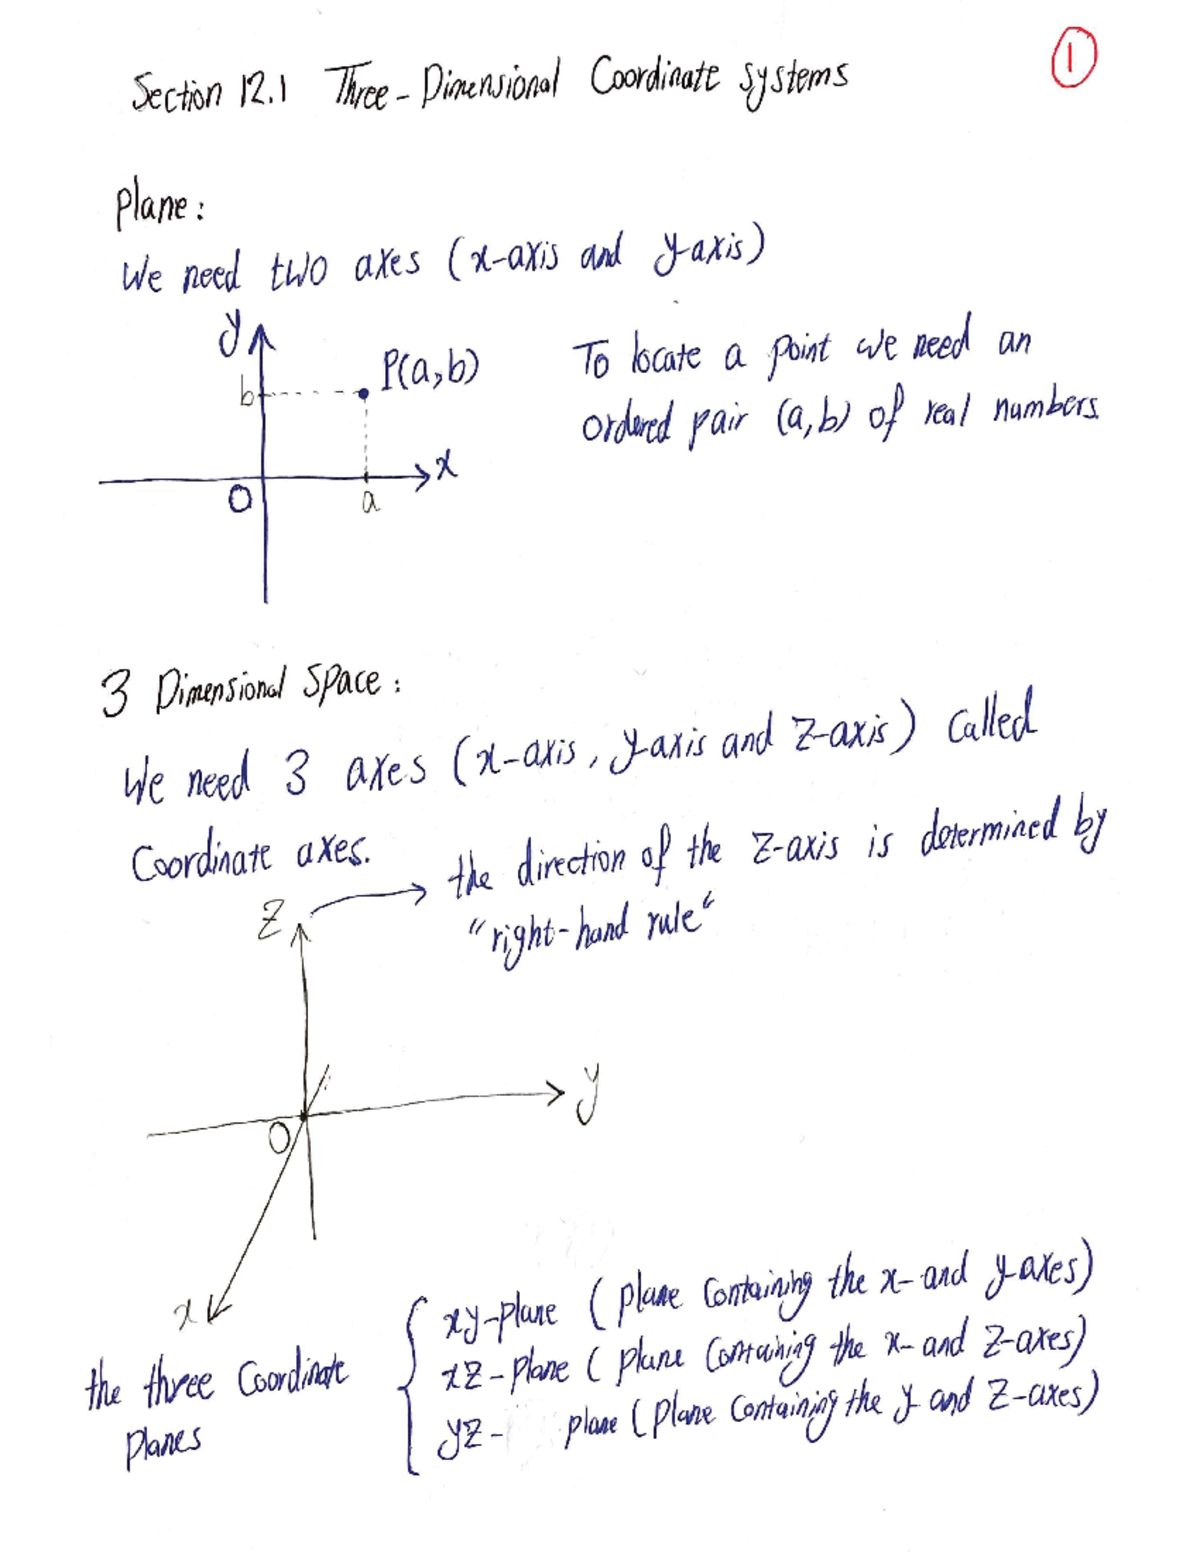 Section 12.1 Three-Dimensional Coordinate systems
1
Plane:
We need two axes (x-axis and y-axis)
y
P(a,b)
b
x
O
a
To locate a point we need an
ordered pair (a,b) of real numbers
3 Dimensional Space:
We need 3 axes (x-axis, y-axis and z-axis) called
Coordinate axes.
the direction of the z-axis is determined by
"right-hand rule"
z
y
O
x
the three Coordinate
Planes
xy-plane (plane containing the x- and y-axes)
xz-plane (plane containing the x- and z-axes)
yz- plane (plane containing the y- and z-axes)